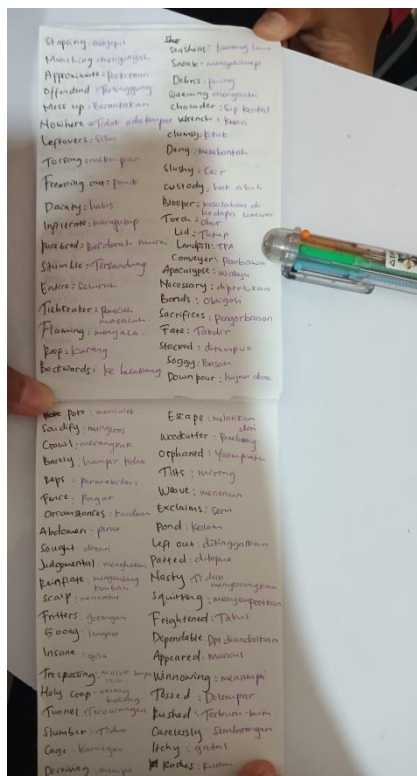 Stapling : menjepit
Munching : mengunyah
Approximate : Perkiraan
Offended : Tersinggung
Mess up : Berantakan
Nowhere : Tidak ada tempat
Leftovers : Sisa
Tossing : melempar
Freaking out : panik
Dainty
Inflorate : mengutup
purebred : berdarah murni
Stumble : Tersandung
Entire : Seluruh
Tiebreaker : Pemecah masalah
Flaming : menyala
Reef : karang
Backwords : ke belakang
Seashells
Sneak : menyelinap
Debris : puing
Queuing : mengantri
chowder : sup kental
wrench : kunci
clumsy : kikuk
Deny : membantah
Slushy : Cair
custody : hak asuh
Blooper : kesalahan di hadapan umum
Torch : obor
Lid : Tutup
Landfill : TPA
Conveyer : Pembawa
Apocalypse : wahyu
Necessary : diperlukan
Bonds : obligasi
Sacrifices : Pengorbanan
Fate : Takdir
Stacked : ditumpuk
Soggy : Basah
Down pour : hujan deras
Solidify : mengeras
Crawl : merangkak
Barely : hampir tidak
Reps : perwakilan
Fence : Pagar
Circumstances : keadaan
Abdomen : perut
Sought : dicari
Judgmental : menghakimi
Reinflate : mengembang kembali
Scalp
Fritters : gorengan
Gooey : lengket
Insane : gila
Trespassing : masuk tanpa
Holy crap
Tunnel : Terowongan
Slumber : Tidur
Cage : Kurungan
Deceiving : menipu
Escape : melarikan diri
Woodcutter : Penebang
Orphaned : Yatim piatu
Tilts : miring
Weave : menenun
Exclaims : seru
Pond : Kolam
Left out : ditinggalkan
Patted : ditepuk
Nasty : Tidak menyenangkan
Squitting : menyemprotkan
Frightened : Takut
Dependable : Dpt diandalkan
Appeared : muncul
Winnowing : menampi
Tossed : Dilempar
Rushed : Terburu-buru
Carelessly : Sembarangan
Itchy : gatal
Rashes : Ruam